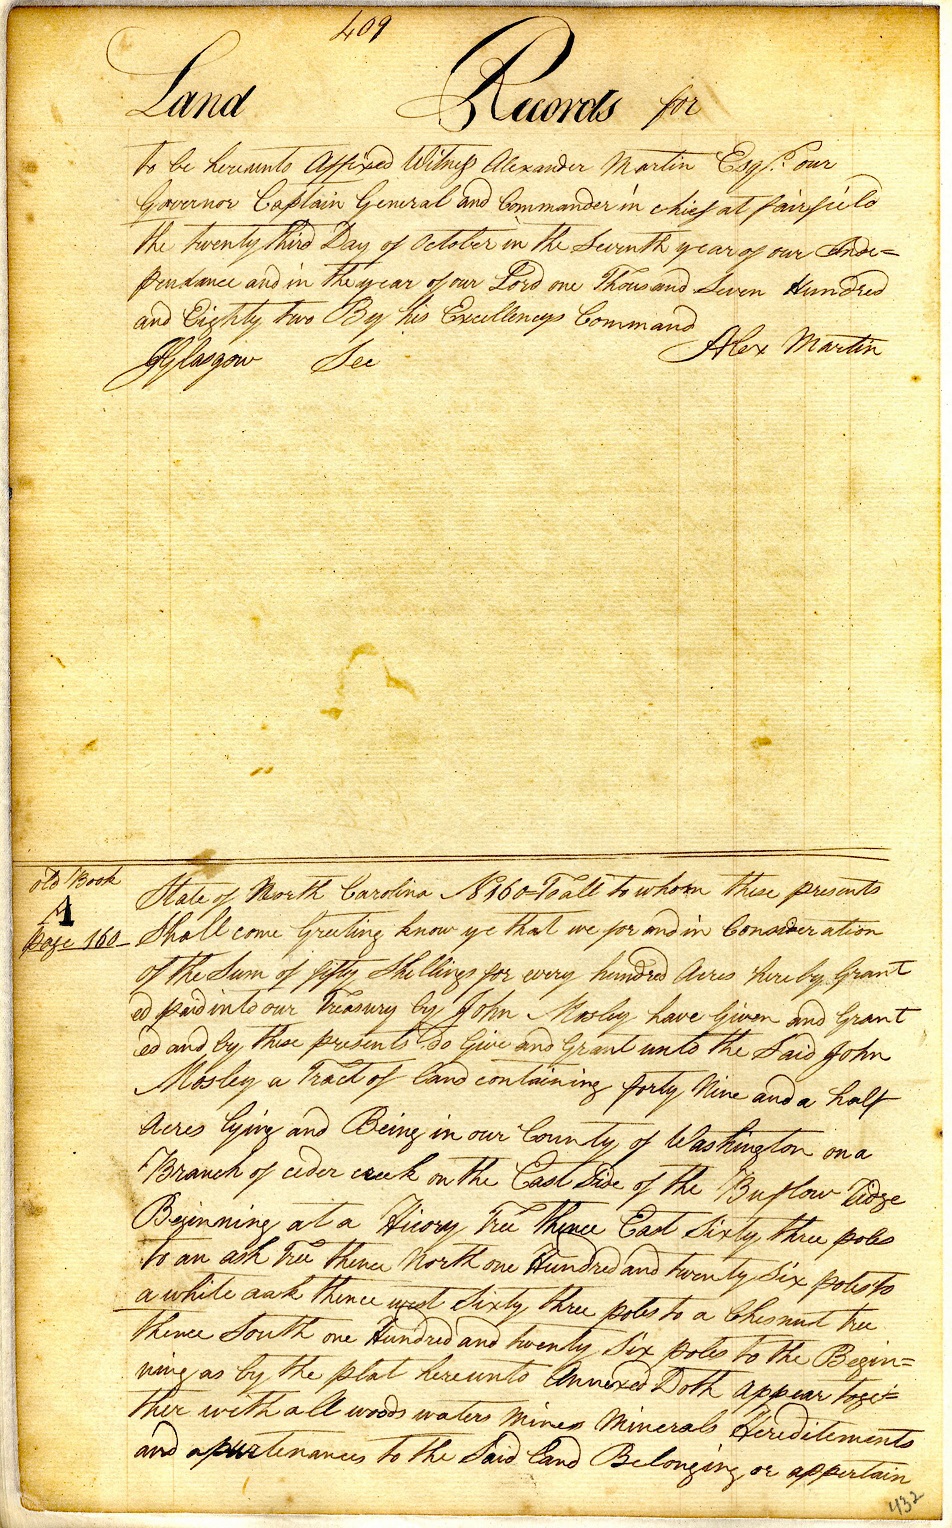 409
Land Records for
to be hereunto Affixed Witness Alexander Martin Esqr. our
Governor Captain General and Commander in chief at fairfield
the twenty third Day of October in the Seventh year of our Inde=
pendance and in the year of our Lord one Thousand Seven Hundred
and Eighty two By his Excellencys Command
Alex Martin
JGlasgow Sec
old Book
A
page 160
State of North Carolina No 160 To all to whom these presents
Shall come Greeting know ye that we for and in Consideration
of the Sum of fifty Shellings for every hundred Acres hereby Grant
ed paid into our Treasury by John Mosley have Given and Grant
ed and by these presents Do Give and Grant unto the Said John
Mosley a Tract of land containing forty Nine and a half
Acres lying and Being in our County of Washington on a
Branch of ceder creek on the East Side of the Buflow Ridge
Beginning at a Hicory Tree thence East Sixty three poles
to an ash Tree thence North one Hundred and twenty Six poles to
a white oak thence west Sixty three poles to a Chesnut tree
thence South one Hundred and twenty Six poles to the Begin=
ning as by the plat hereunto Annexed Doth appear toge=
ther with all woods waters Mines Minerals Hereditements
and apurtenances to the Said Land Belonging or appertain
432